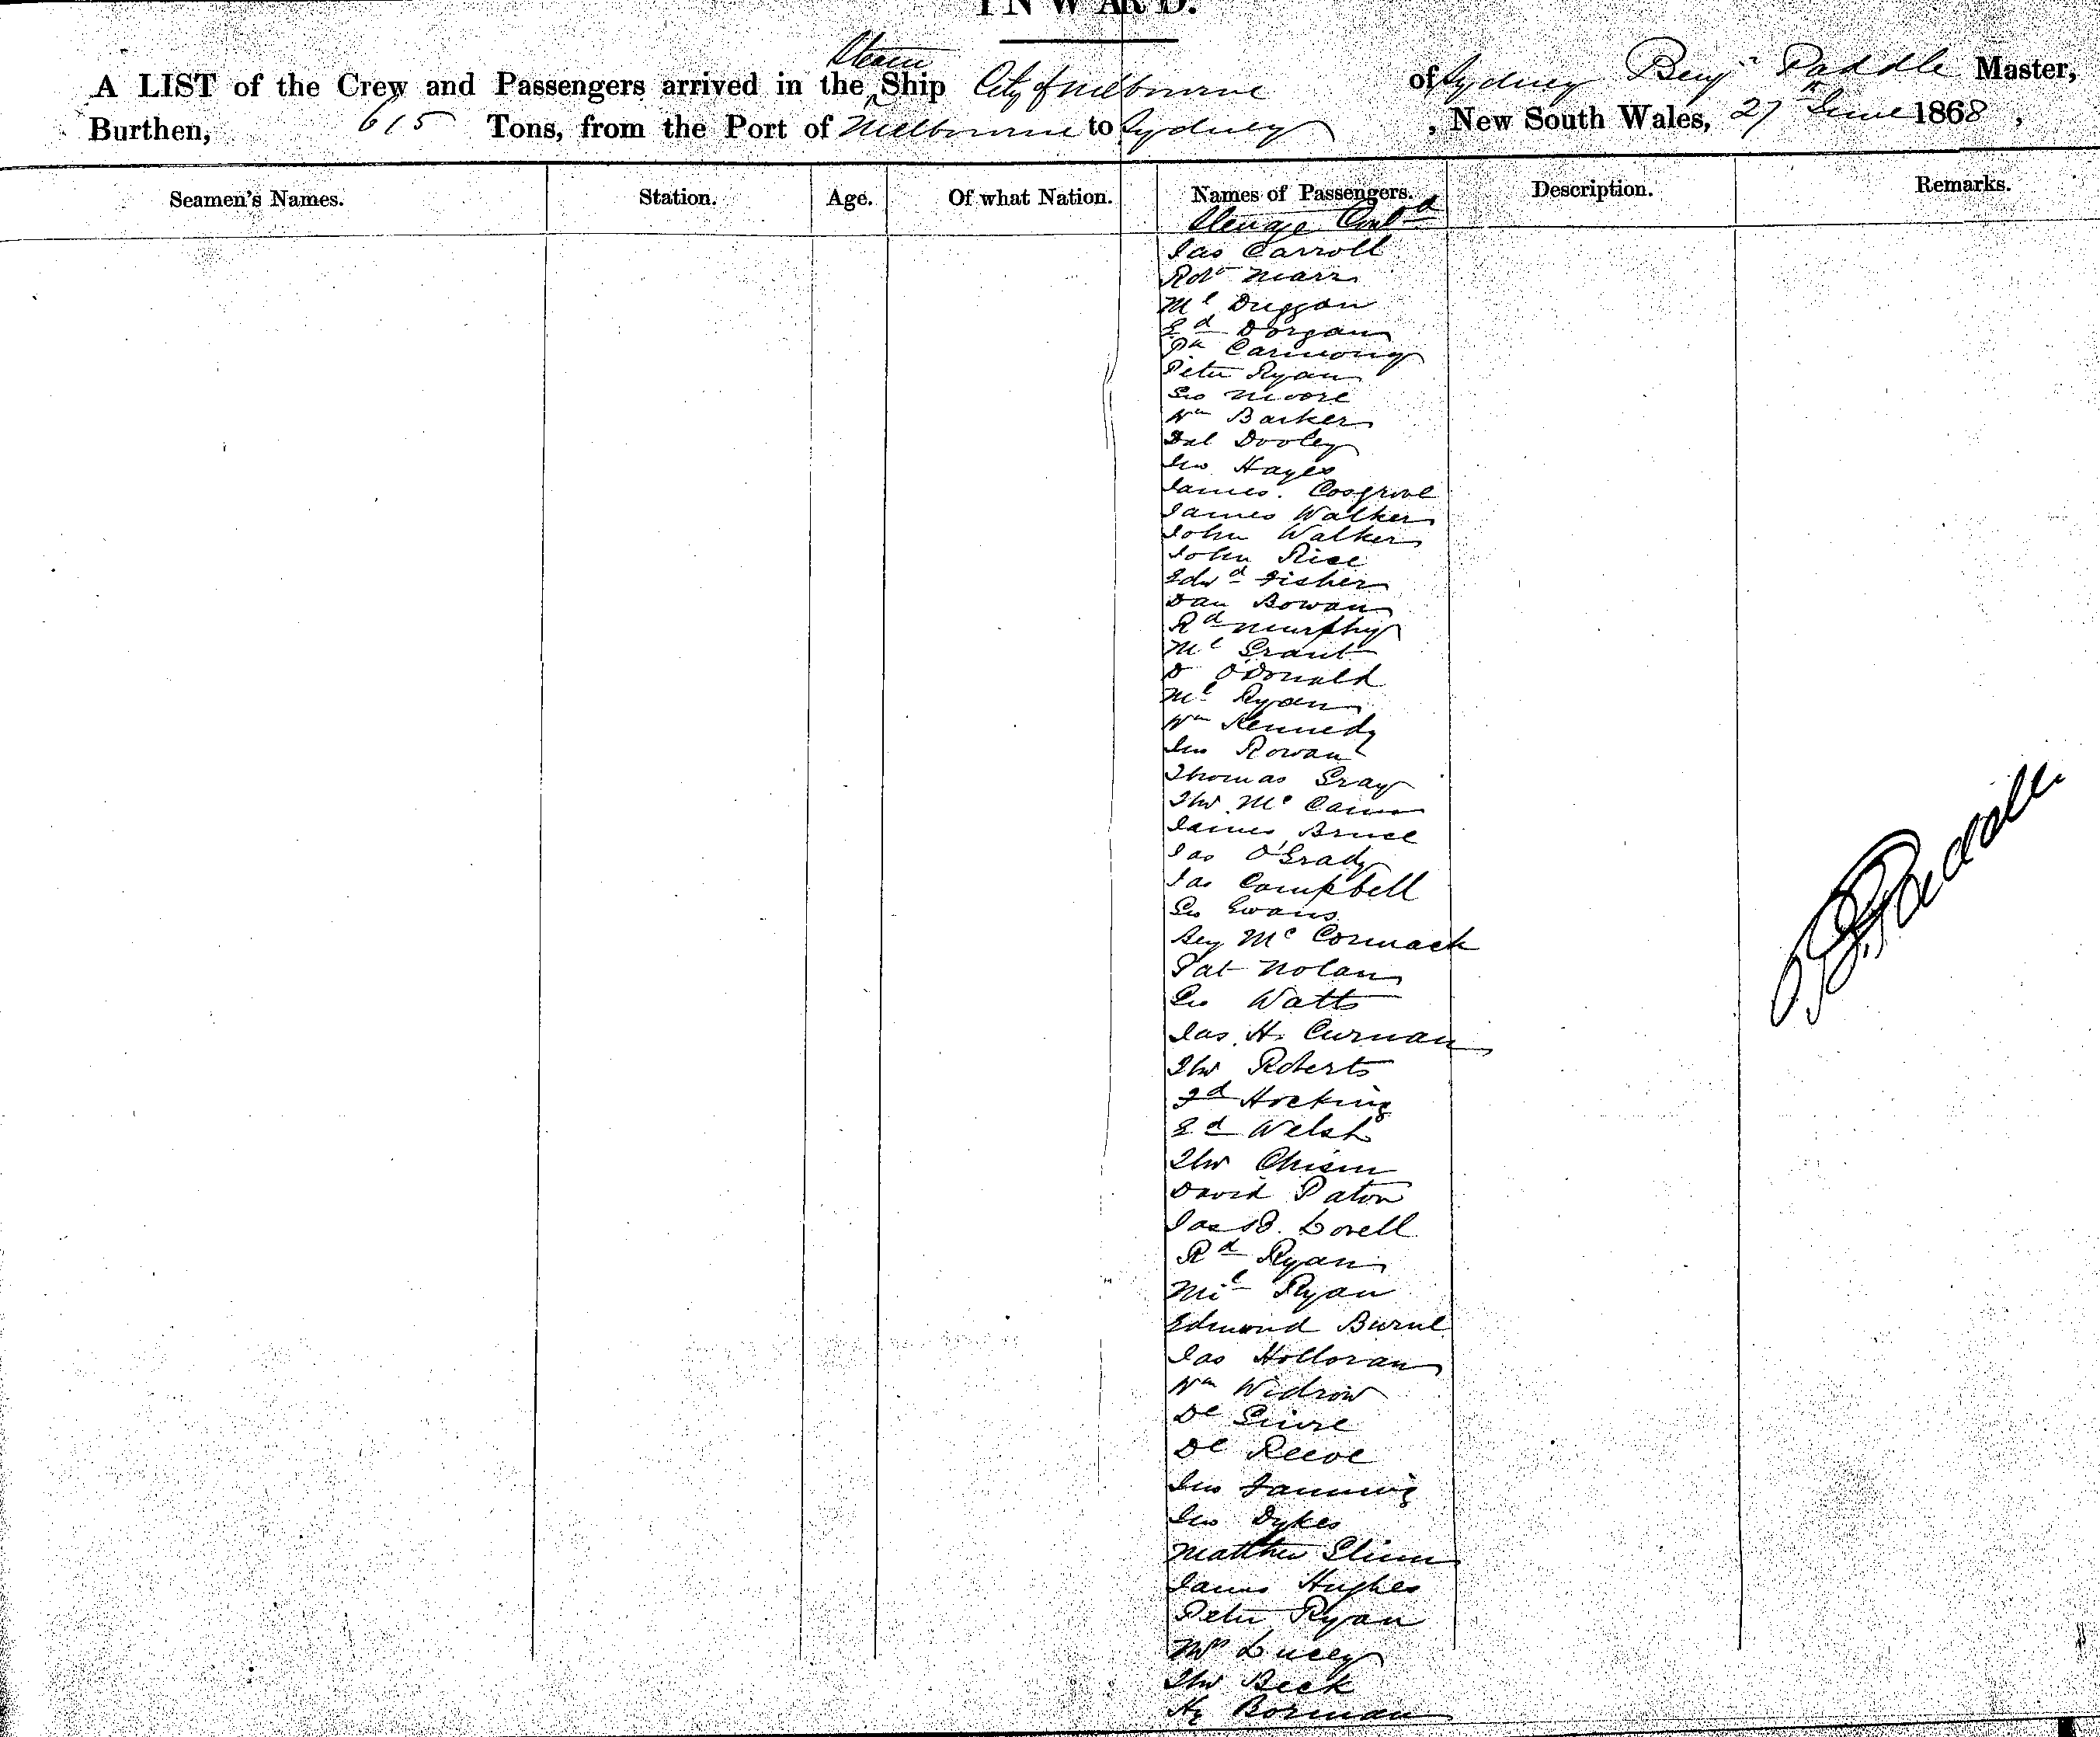 INWARD.
A LIST of the Crew and Passengers arrived in the Steam Ship City of Melbourne of Sydney Benjn Paddle Master,
Burthen, 615 Tons, from the Port of Melbourne to Sydney, New South Wales, 27th June 1868,
Seamen's Names. Station. Age. Of what Nation. Names of Passengers. Description. Remarks.
Steerage Contd
Jas Carroll
Robt Marr
Ml Duggan
Ed Dorgan
Pk Carmony
Peter Ryan
Geo Moore
Wm Barker
Dal Dooley
Jno Hayes
James Cosgrove
James Walker
John Walker
John Rice
Edwd Fisher
Dan Bowan
Rd Murphy
Ml Grant
D O'Donald
Ml Ryan
Wm Kennedy
Jno Rowan
Thomas Gray
Thos Mc
James Bruce
Jas O'Grady
Jas Campbell
Geo Evans
Mc Cormack
Pat Nolan
Geo Watts
Jas H. Curnan
Thos Roberts
Fd Hocking
Ed Welsh
Thos Chism
David Paton
Jas B. Lovell
Rd Ryan
Michl Ryan
Edmond Burne
Jas Holloran
Wm Widrow
Dl
Dl Reeve
Jno Fanning
Jno Dykes
Matthew Glinn
James Hughes
Peter Ryan
Lucey
Thos Beck
Hy Borman
B. Paddle